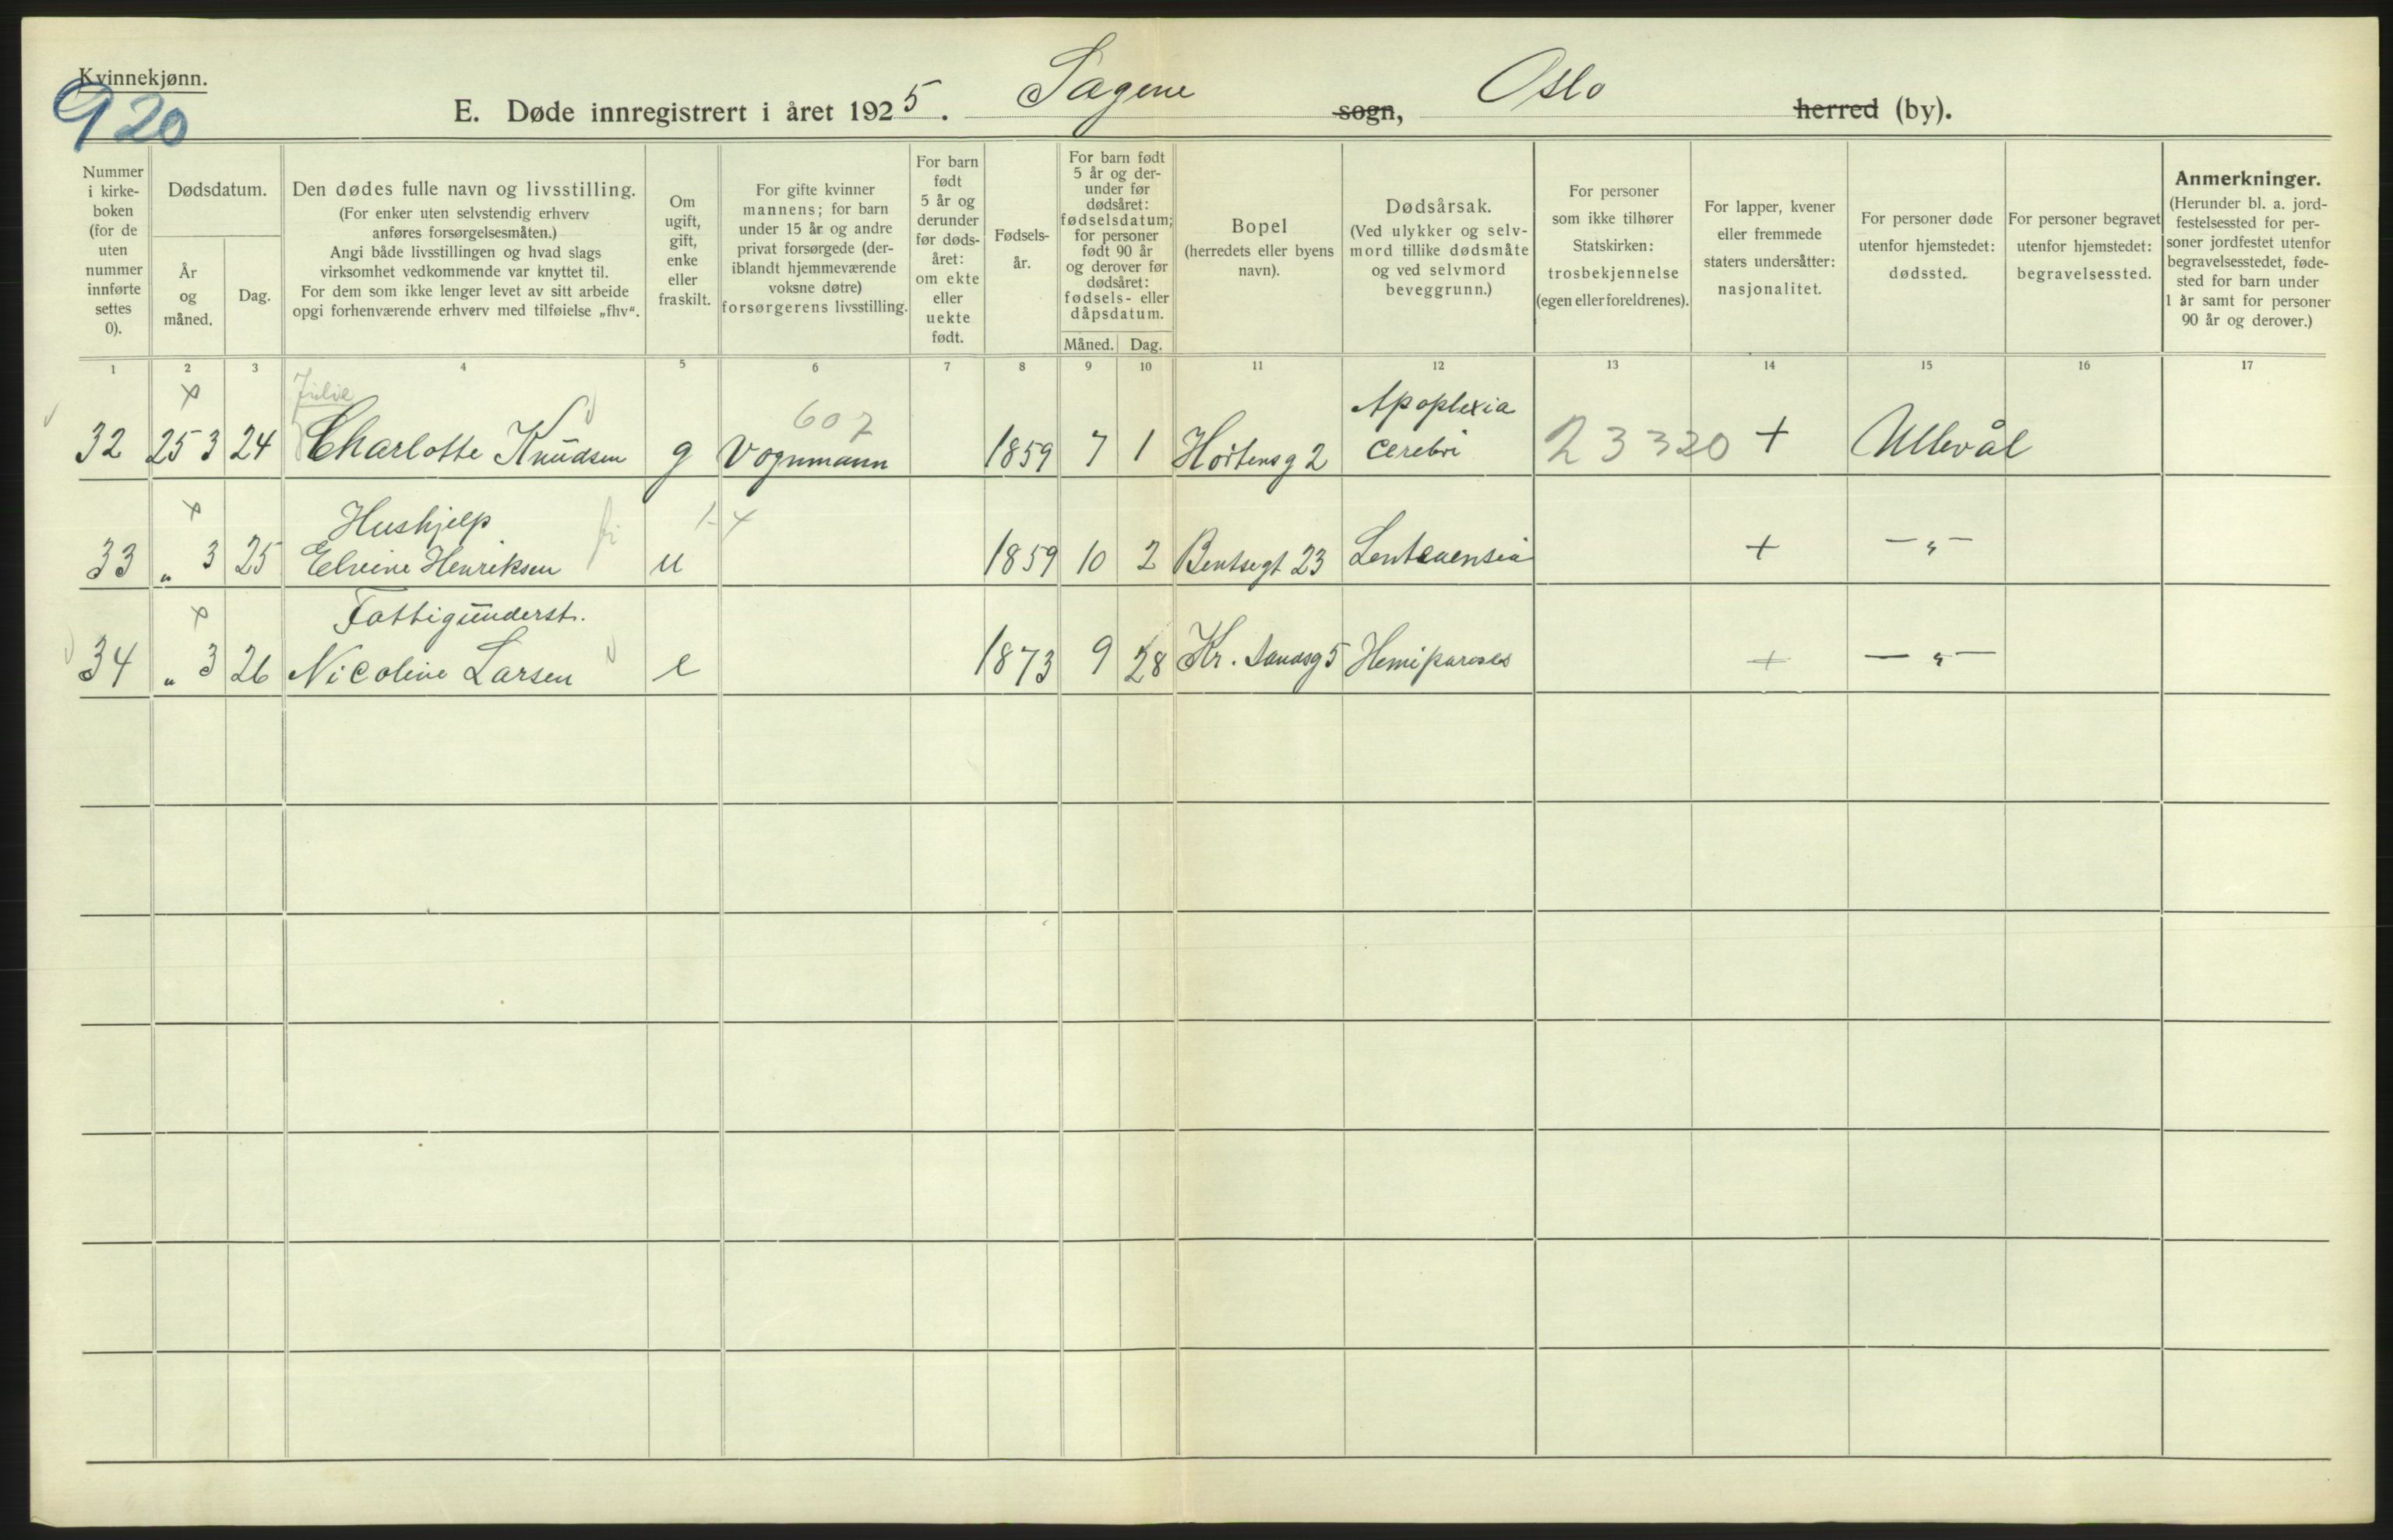 Kvinnekjønn.
920
E. Døde innregistrert i året 1925. Sagene sogn, Oslo herred (by).
Nummer i kirke-boken (for de uten nummer innførte settes 0).
Dødsdatum.
År og måned.
Dag.
Den dødes fulle navn og livsstilling.
(For enker uten selvstendig erhverv
anføres forsørgelsesmåten.)
Angi både livsstillingen og hvad slags
virksomhet vedkommende var knyttet til.
For dem som ikke lenger levet av sitt arbeide
opgi forhenværende erhverv med tilføielse „fhv“.
Om ugift, gift, enke eller fraskilt.
For gifte kvinner
mannens; for barn
under 15 år og andre
privat forsørgede (der-
iblandt hjemmeværende
voksne døtre)
forsørgerens livsstilling.
For barn født 5 år og derunder før døds-året: om ekte eller uekte født.
Fødsels-år.
For barn født
5 år og der-
under før
dødsåret:
fødselsdatum;
for personer
født 90 år
og derover før
dødsåret:
fødsels- eller
dåpsdatum.
Måned. Dag.
Bopel
(herredets eller byens
navn).
Dødsårsak.
(Ved ulykker og selv-
mord tillike dødsmåte
og ved selvmord
beveggrunn.)
For personer
som ikke tilhører
Statskirken:
trosbekjennelse
(egen eller foreldrenes).
For lapper, kvener
eller fremmede
staters undersåtter:
nasjonalitet.
For personer døde
utenfor hjemstedet:
dødssted.
For personer begravet
utenfor hjemstedet:
begravelsessted.
Anmerkninger.
(Herunder bl. a. jord-
festelsessted for per-
soner jordfestet utenfor
begravelsesstedet, føde-
sted for barn under
1 år samt for personer
90 år og derover.)
1 2 3 4 5 6 7 8 9 10 11 12 13 14 15 16 17
Julie 607 Apoplexia
32 25 3 24 Charlotte Knudsen g Vognmann 1859 7 1 Hortensg 2 cerebri 23320 + Ullevål
Hushjelp
33 „ 3 25 Elvine Henriksen u 1859 10 2 Bentsegt 23 + — „ —
Fattigunderst.
34 „ 3 26 Nicoline Larsen e 1873 9 28 Kr. sandsg 5 Hemipareses + — „ —